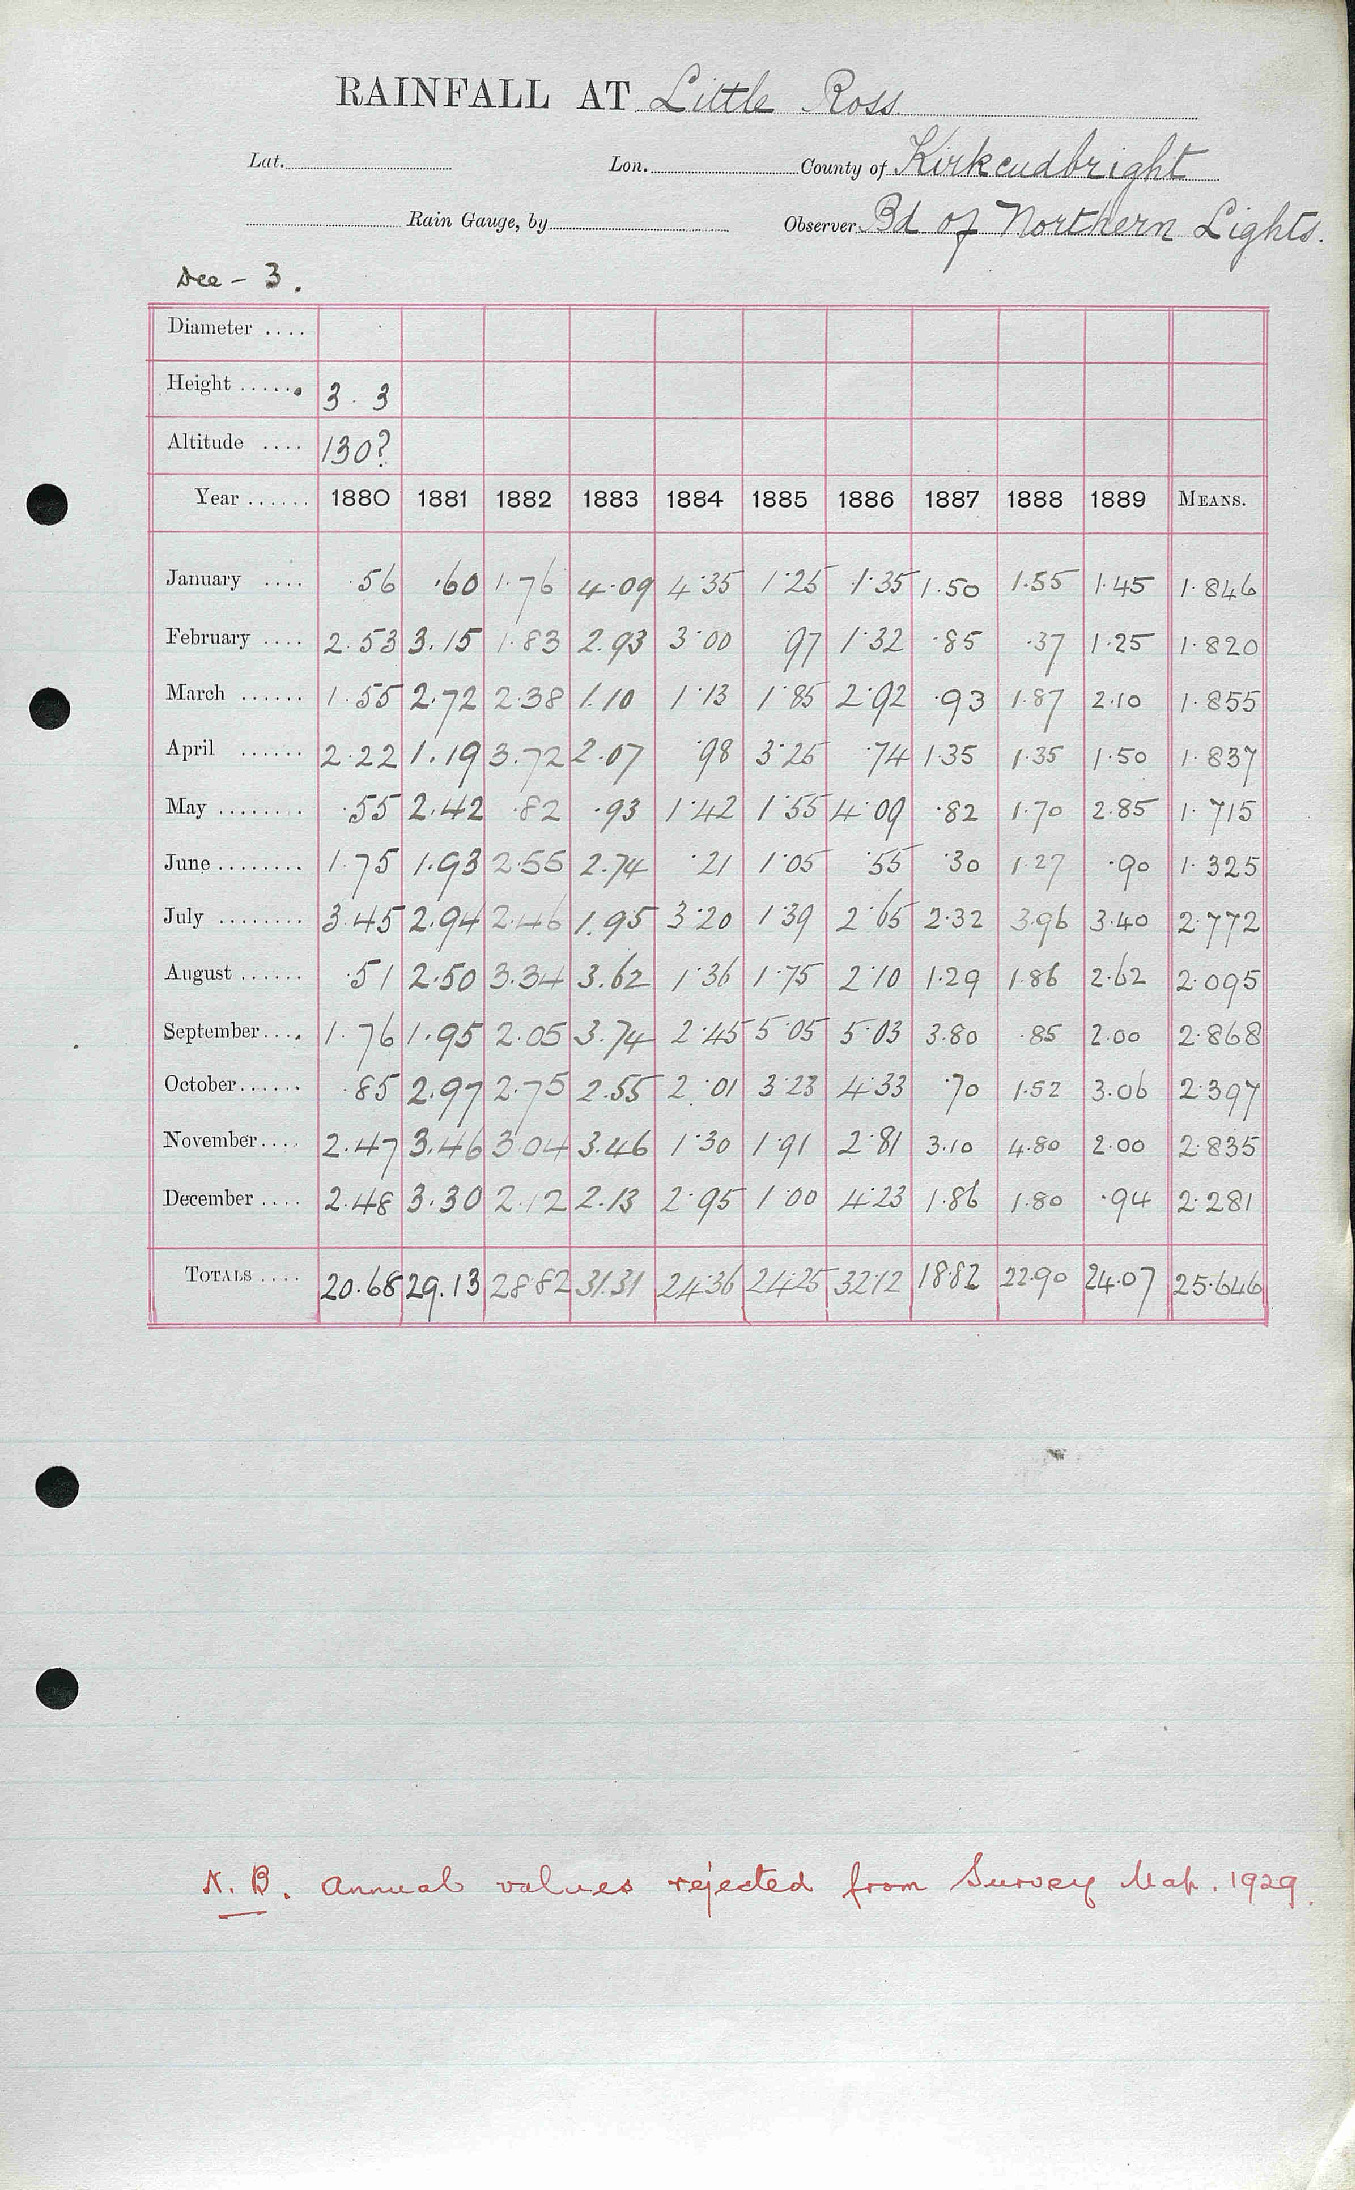 RAINFALL AT Little Ross
Lat. Lon. County of Kirkcudbright
Rain Gauge, by Observer Bd of Northern Lights.
Dee - 3.
Diameter ....
Height ...... 3. 3
Altitude .... 130?
Year ...... 1880 1881 1882 1883 1884 1885 1886 1887 1888 1889 MEANS.
January .... .56 .60 1.76 4.09 4.35 1.25 1.35 1.50 1.55 1.45 1.846
February .... 2.53 3.15 1.83 2.93 3.00 .97 1.32 .85 .37 1.25 1.820
March ...... 1.55 2.72 2.38 1.10 1.13 1.85 2.92 .93 1.87 2.10 1.855
April ...... 2.22 1.19 3.72 2.07 .98 3.25 .74 1.35 1.35 1.50 1.837
May ........ .55 2.42 .82 .93 1.42 1.55 4.09 .82 1.70 2.85 1.715
June ........ 1.75 1.93 2.55 2.74 .21 1.05 .55 .30 1.27 .90 1.325
July ........ 3.45 2.94 2.46 1.95 3.20 1.39 2.65 2.32 3.96 3.40 2.772
August ...... .51 2.50 3.34 3.62 1.36 1.75 2.10 1.29 1.86 2.62 2.095
September .... 1.76 1.95 2.05 3.74 2.45 5.05 5.03 3.80 .85 2.00 2.868
October ...... .85 2.97 2.75 2.55 2.01 3.23 4.33 .70 1.52 3.06 2.397
November .... 2.47 3.46 3.04 3.46 1.30 1.91 2.81 3.10 4.80 2.00 2.835
December .... 2.48 3.30 2.12 2.13 2.95 1.00 4.23 1.86 1.80 .94 2.281
TOTALS .... 20.68 29.13 28.82 31.31 24.36 24.25 32.12 18.82 22.90 24.07 25.646
N. B. Annual values rejected from Survey Map. 1929.